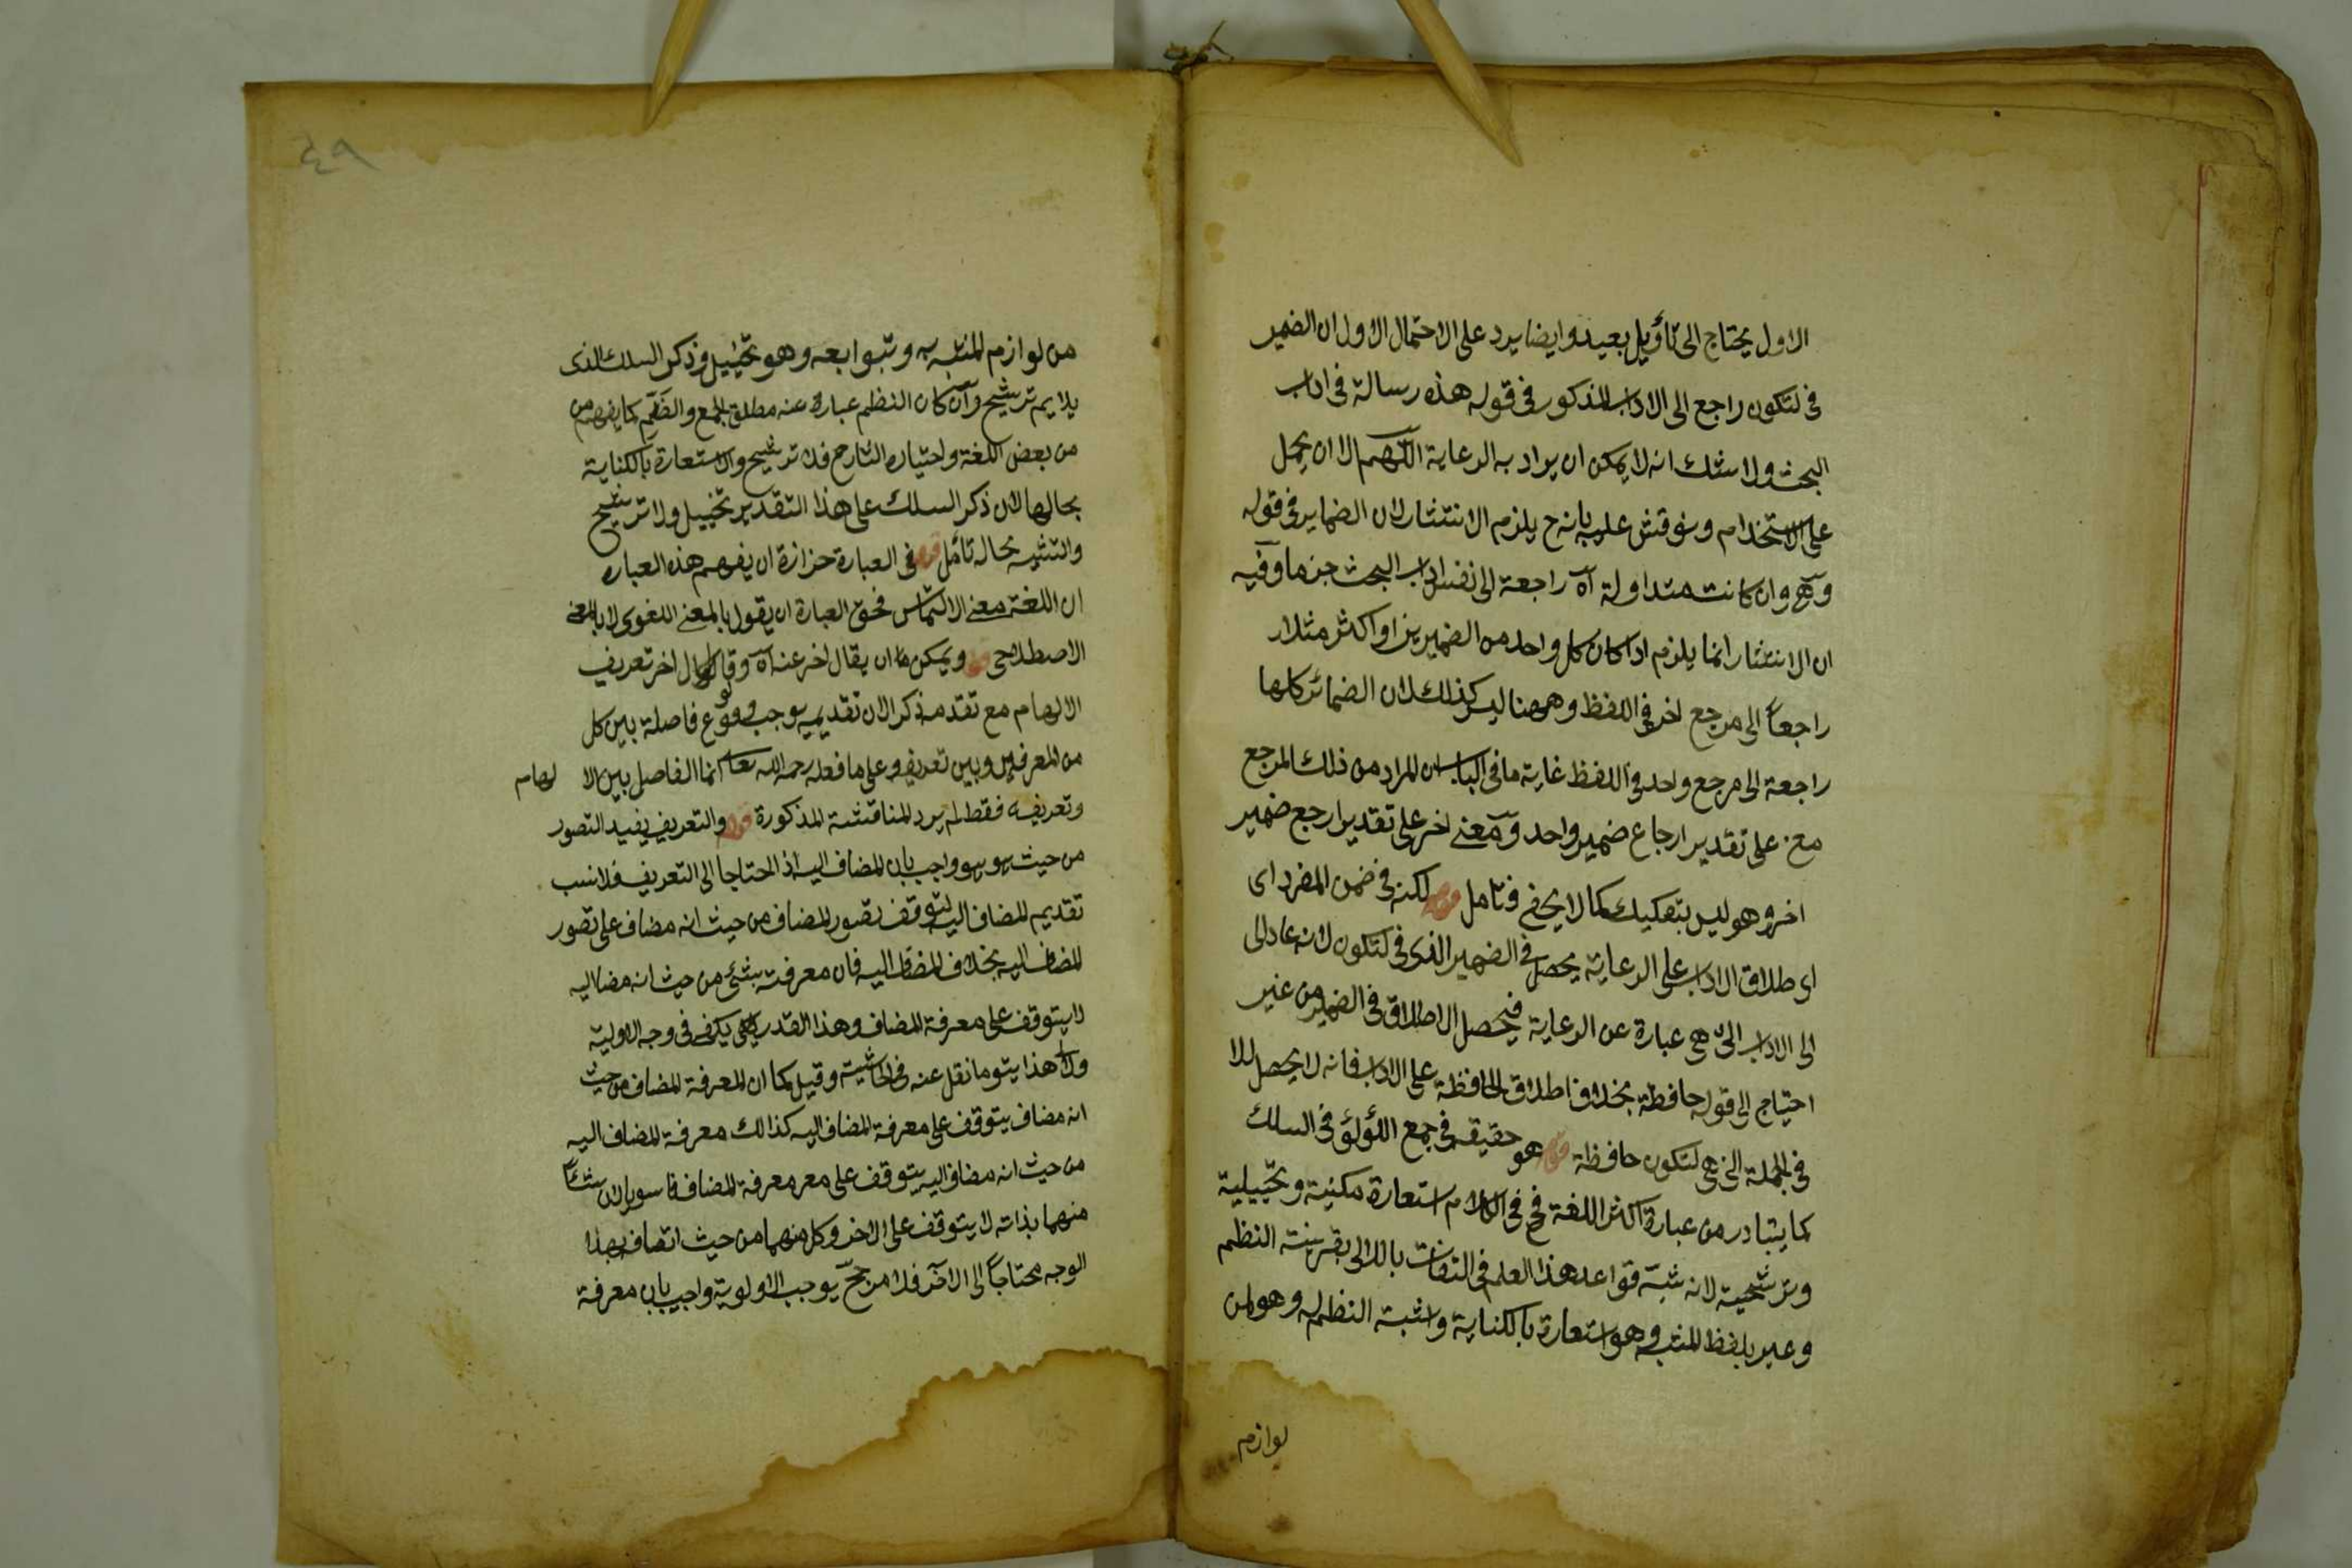 الاول يحتاج الى تأويل بعيد وايضا يرد على الاحتمال الاول ان الضمير
فى لتكون راجع الى الاداب المذكور فى قوله هذه رسالة فى اداب
البحث ولا شك انه لا يمكن ان يراد به الرعاية اللهم الا ان يحمل
على الاستخدام ونوقش عليه بانه ح يلزم الانتشار لان الضماير فى قوله
وهى وان كانت متداولة اه راجعة الى نفس اداب البحث جزما وفيه
ان الانتشار انما يلزم اذا كان كل واحد من الضميرين او اكثر مثلا
راجعاً الى مرجع اخر فى اللفظ وههنا ليس كذلك لان الضمائر كلها
راجعة الى مرجع واحد فى اللفظ غاية ما فى الباب ان المراد من ذلك المرجع
معنى على تقدير ارجاع ضمير واحد ومعنى اخر على تقدير ارجع ضمير
اخر وهو ليس بتفكيك كما لا يخفى فتامل قوله لكنه فى ضمن المفرد اى
اى طلاق الاداب على الرعاية يحصل فى الضمير الذى فى لتكون لانه عاد الى
الى الاداب التى هى عبارة عن الرعاية فيحصل الاطلاق فى الضمير من غير
احتياج الى قوله حافظة بخلاف اطلاق الحافظة على الاداب فانه لا يحصل الا
فى الجملة التى هى لتكون حافظة قوله هو حقيقة فى جمع اللؤلؤ فى السلك
كما يتبادر من عبارة اكثر اللغة فح فى الكلام استعارة مكنية وتخييلية
وترشحية لانه شبه قواعد هذا العلم فى التفات باللالى بقرينة النظم
وعبر بلفظ المشبه وهو استعارة بالكناية واثبت النظم له وهو من
لوازم
٤٩
من لوازم المشبه به وتوابعه وهو تخييل وذكر السلك الذى
يلايم ترشيح وان كان النظم عبارة عنه مطلق الجمع والضم كما يفهم من
من بعض اللغة واختياره الشارح فلا ترشيح والاستعارة بالكناية
بحالها لان ذكر السلك على هذا التقدير تخييل ولا ترشيح
والتشبيه بحاله تأمل قوله فى العبارة حزازة ان يفهم هذه العباره
ان اللغة معنى الالتماس فحق العبارة ان يقول بالمعنى اللغوى لا بالمعنى
الاصطلاحى قوله ويمكن ان يقال اخر عنه اه وقال اخر تعريف
الالهام مع تقدمه ذكرا لان تقديمه يوجب وقوع فاصلة بين كل
من المعرفين وبين تعريفه وعلى ما فعله رحمه الله تعالى انما الفاصل بين الالهام
وتعريفه فقط لم يرد المناقشة المذكورة قوله والتعريف يفيد التصور
من حيث هو هو واجب بان المضاف اليه اذا احتاجا الى التعريف فلانسب
تقديم المضاف اليه لتوقف تصور المضاف من حيث انه مضاف على تصور
المضاف اليه بخلاف المضاف اليه فان معرفته بشئ من حيث انه مضا اليه
لا يتوقف على معرفة المضاف وهذا القدر يكفى فى وجه الاولية
وعلى هذا يتو ما نقل عنه فى الحاشية وقيل كما ان المعرفة المضاف من حيث
انه مضاف يتوقف على معرفة المضاف اليه كذالك معرفة المضاف اليه
من حيث انه مضاف اليه يتوقف على معر معرفة المضاف لان شيئاً
منهما بذاته لا يتوقف على الاخر وكل منهما من حيث اتصاف بهذا
الوجه محتاجاً الى الاخر فلا مرجح يوجب الاولوية واجيب بان معرفة